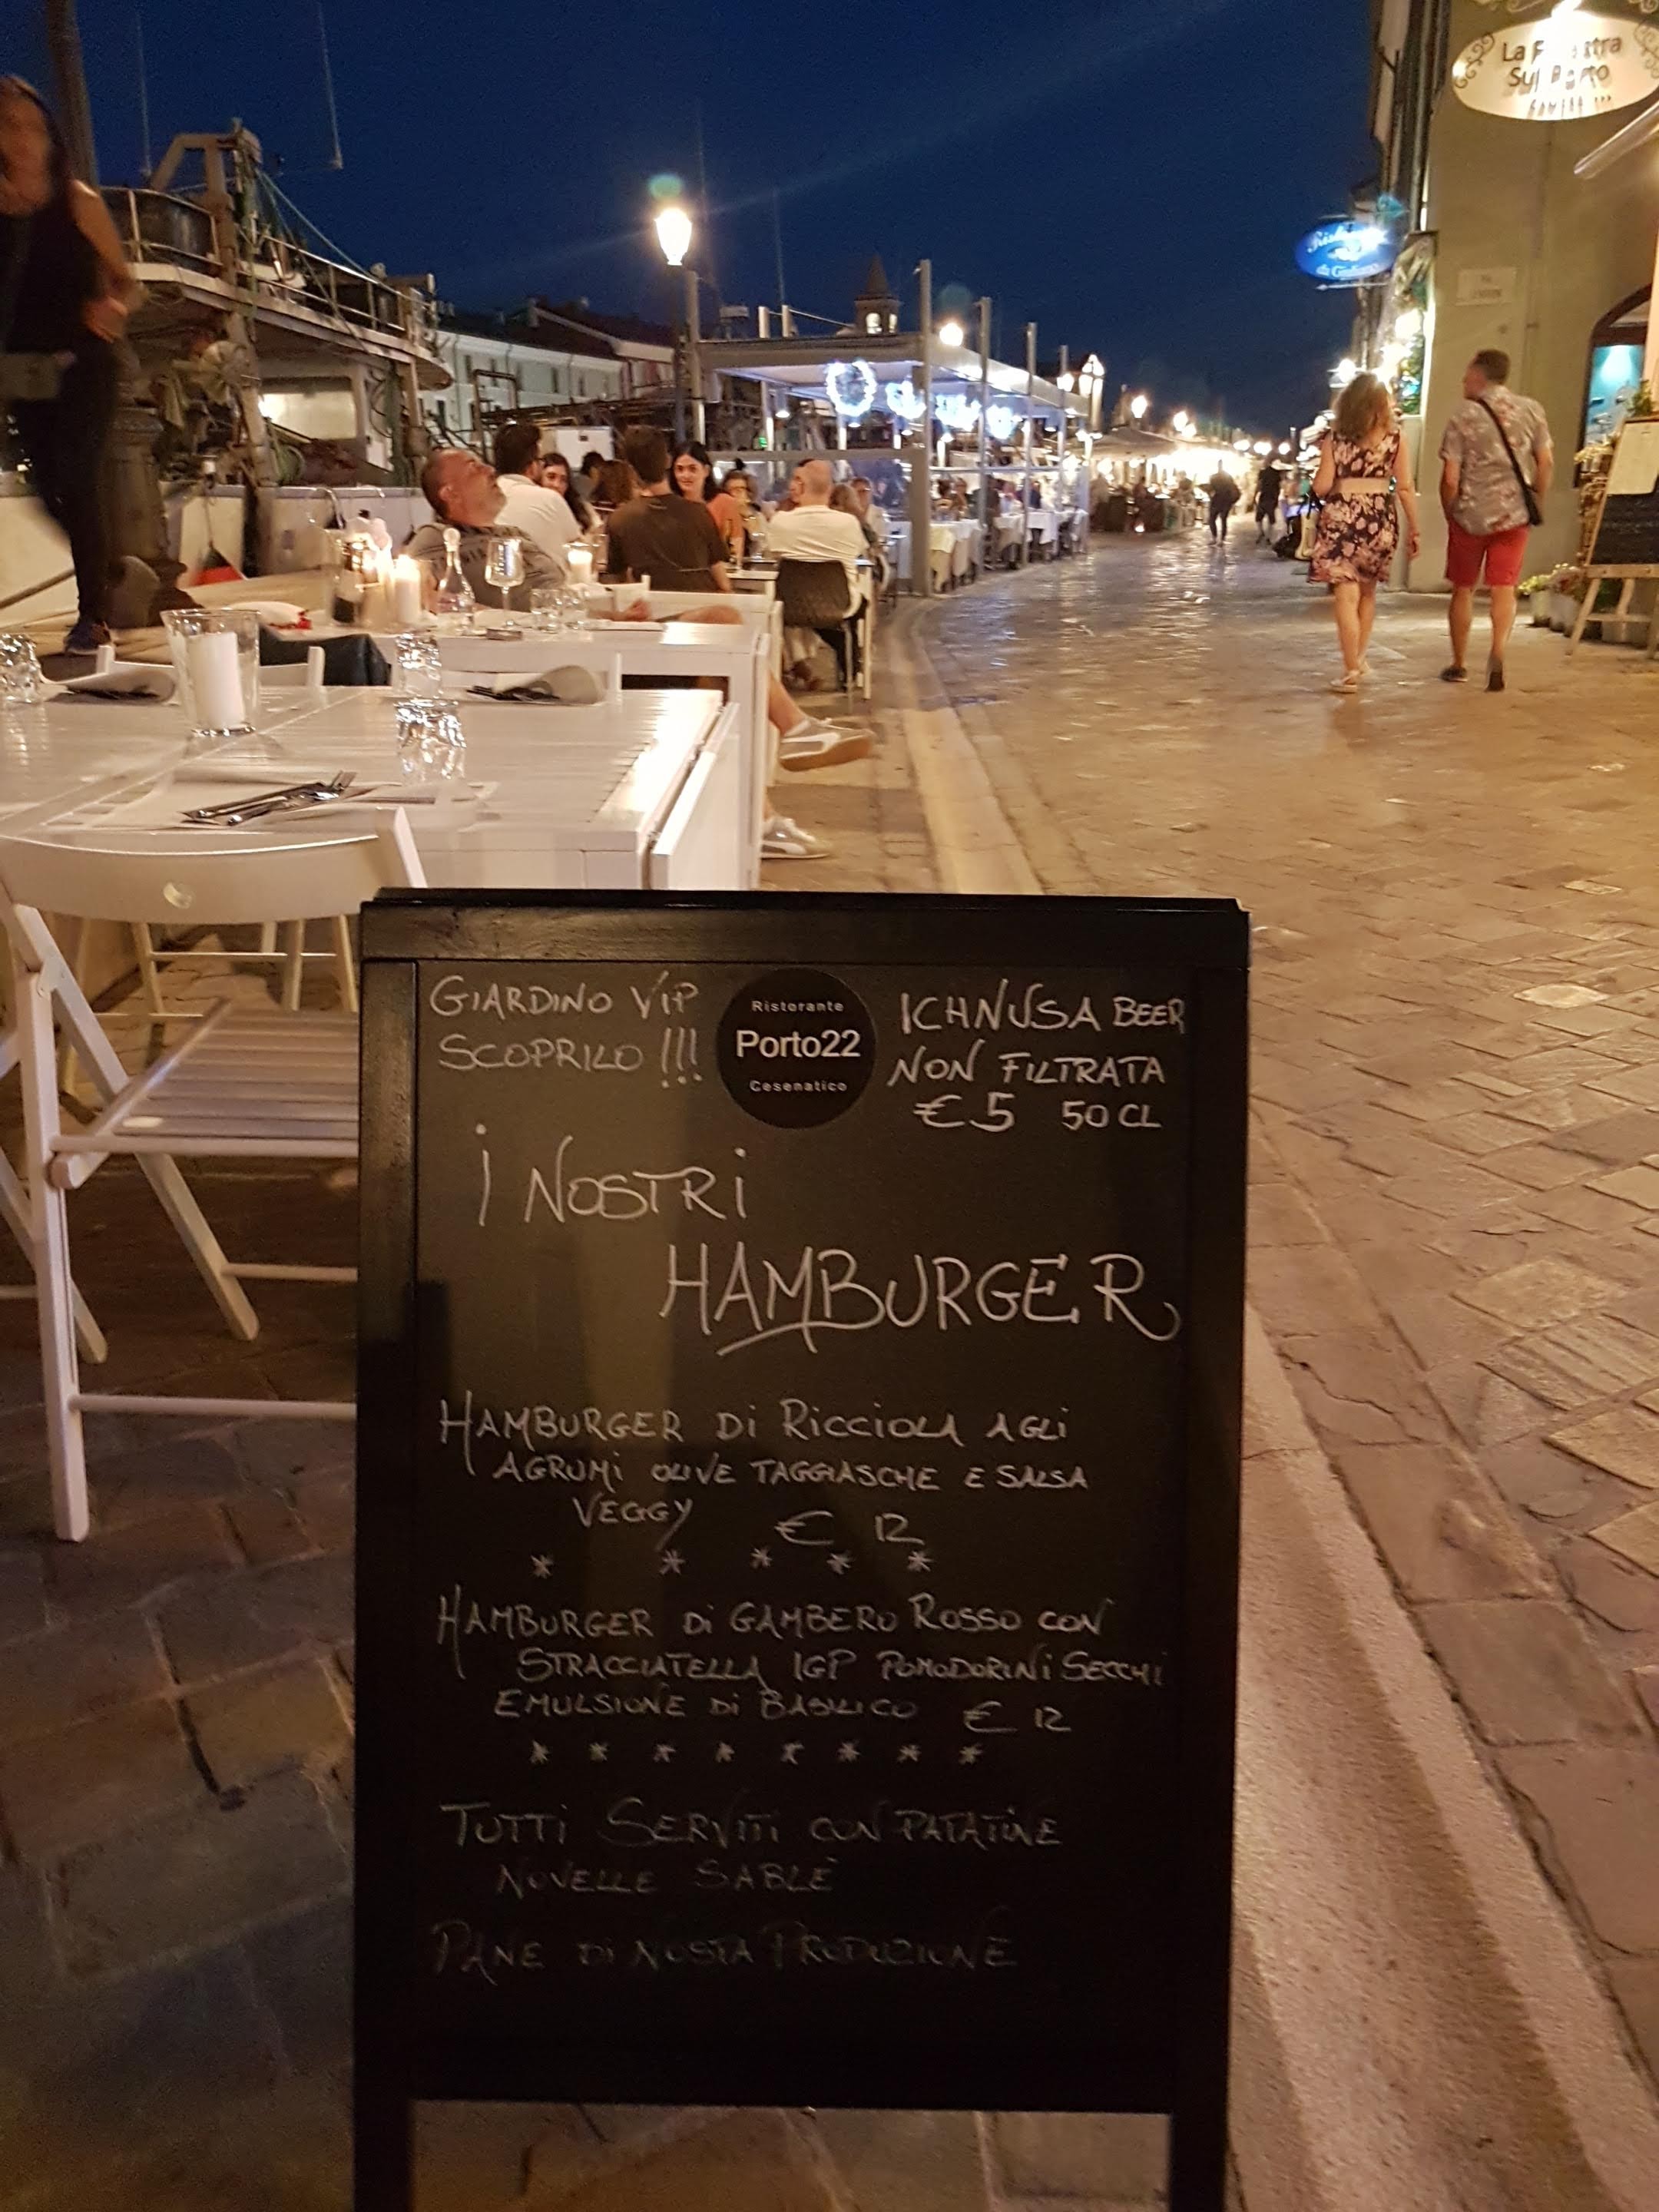 La
Sul
Ristorante
da Giuliano
GIARDINO VIP
SCOPRILO !!!
Ristorante
Porto22
Cesenatico
ICHNUSA BEER
NON FILTRATA
€ 5 50 CL
I NOSTRI
HAMBURGER
HAMBURGER DI RICCIOLA AGLI
AGRUMI OLIVE TAGGIASCHE E SALSA
VEGGY € 12
* * * * *
HAMBURGER DI GAMBERO ROSSO CON
STRACCIATELLA IGP POMODORINI SECCHI
EMULSIONE DI BASILICO € 12
* * * * * * * *
TUTTI SERVITI CON PATATINE
NOVELLE SABLÈ
PANE DI NOSTA PRODUZIONE